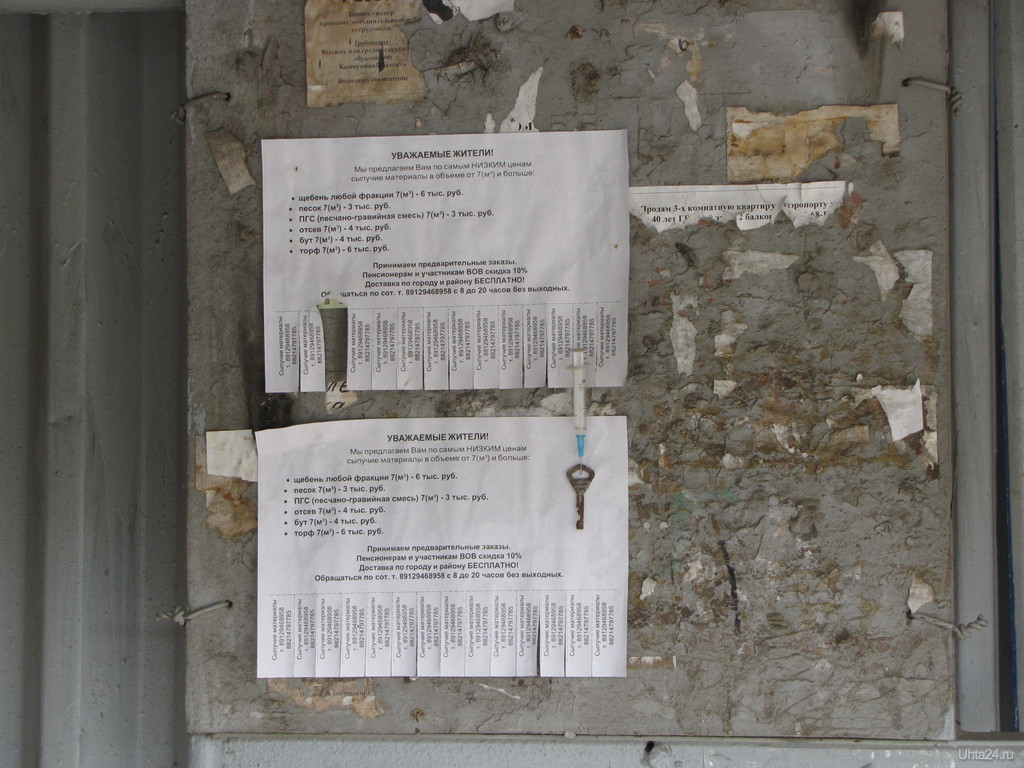 Бизнес - центр
Требования:
УВАЖАЕМЫЕ ЖИТЕЛИ!
Мы предлагаем Вам по самым НИЗКИМ ценам
сыпучие материалы в объеме от 7(м³) и больше:
• щебень любой фракции 7(м³) - 6 тыс. руб.
• песок 7(м³) - 3 тыс. руб.
• ПГС (песчано-гравийная смесь) 7(м³) - 3 тыс. руб.
• отсев 7(м³) - 4 тыс. руб.
• бут 7(м³) - 4 тыс. руб.
• торф 7(м³) - 6 тыс. руб.
Принимаем предварительные заказы.
Пенсионерам и участникам ВОВ скидка 10%
Доставка по городу и району БЕСПЛАТНО!
Обращаться по сот. т. 89129468958 с 8 до 20 часов без выходных.
Сыпучие материалы
т. 89129468958
88214797785
Продам 3-х комнатную квартиру
40 лет
УВАЖАЕМЫЕ ЖИТЕЛИ!
Мы предлагаем Вам по самым НИЗКИМ ценам
сыпучие материалы в объеме от 7(м³) и больше:
• щебень любой фракции 7(м³) - 6 тыс. руб.
• песок 7(м³) - 3 тыс. руб.
• ПГС (песчано-гравийная смесь) 7(м³) - 3 тыс. руб.
• отсев 7(м³) - 4 тыс. руб.
• бут 7(м³) - 4 тыс. руб.
• торф 7(м³) - 6 тыс. руб.
Принимаем предварительные заказы.
Пенсионерам и участникам ВОВ скидка 10%
Доставка по городу и району БЕСПЛАТНО!
Обращаться по сот. т. 89129468958 с 8 до 20 часов без выходных.
Сыпучие материалы
т. 89129468958
88214797785
Uhta24.ru